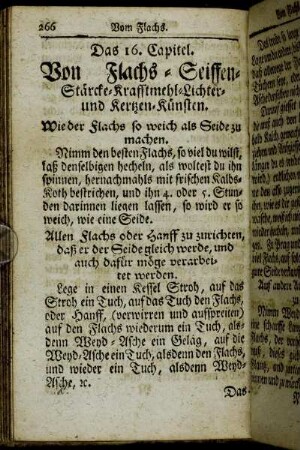 266 Vom Flachs.
Das 16. Capitel.
Von Flachs-Seiffen-
Stärcke-Krafftmehl-Lichter-
und Kertzen-Künsten.
Wie der Flachs so weich als Seide zu
machen.
Nimm den besten Flachs, so viel du wilst,
laß denselbigen hecheln, als woltest du ihn
spinnen, hernachmahls mit frischen Kalbs-
Koth bestrichen, und ihn 4. oder 5. Stun-
den darinnen liegen lassen, so wird er so
weich, wie eine Seide.
Allen Flachs oder Hanff zu zurichten,
daß er der Seide gleich werde, und
auch dafür möge verarbei-
tet werden.
Lege in einen Kessel Stroh, auf das
Stroh ein Tuch, auf das Tuch den Flachs,
oder Hanff, (verwirren und aufspreiten)
auf den Flachs wiederum ein Tuch, als-
denn Weyd-Asche ein Geläg, auf die
Weyd-Asche ein Tuch, alsdenn den Flachs,
und wieder ein Tuch, alsdenn Weyd-
Asche, ꝛc.
Das